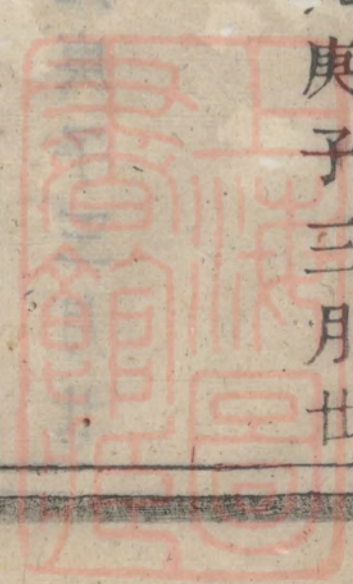 庚子三月廿
上海圖
書館印